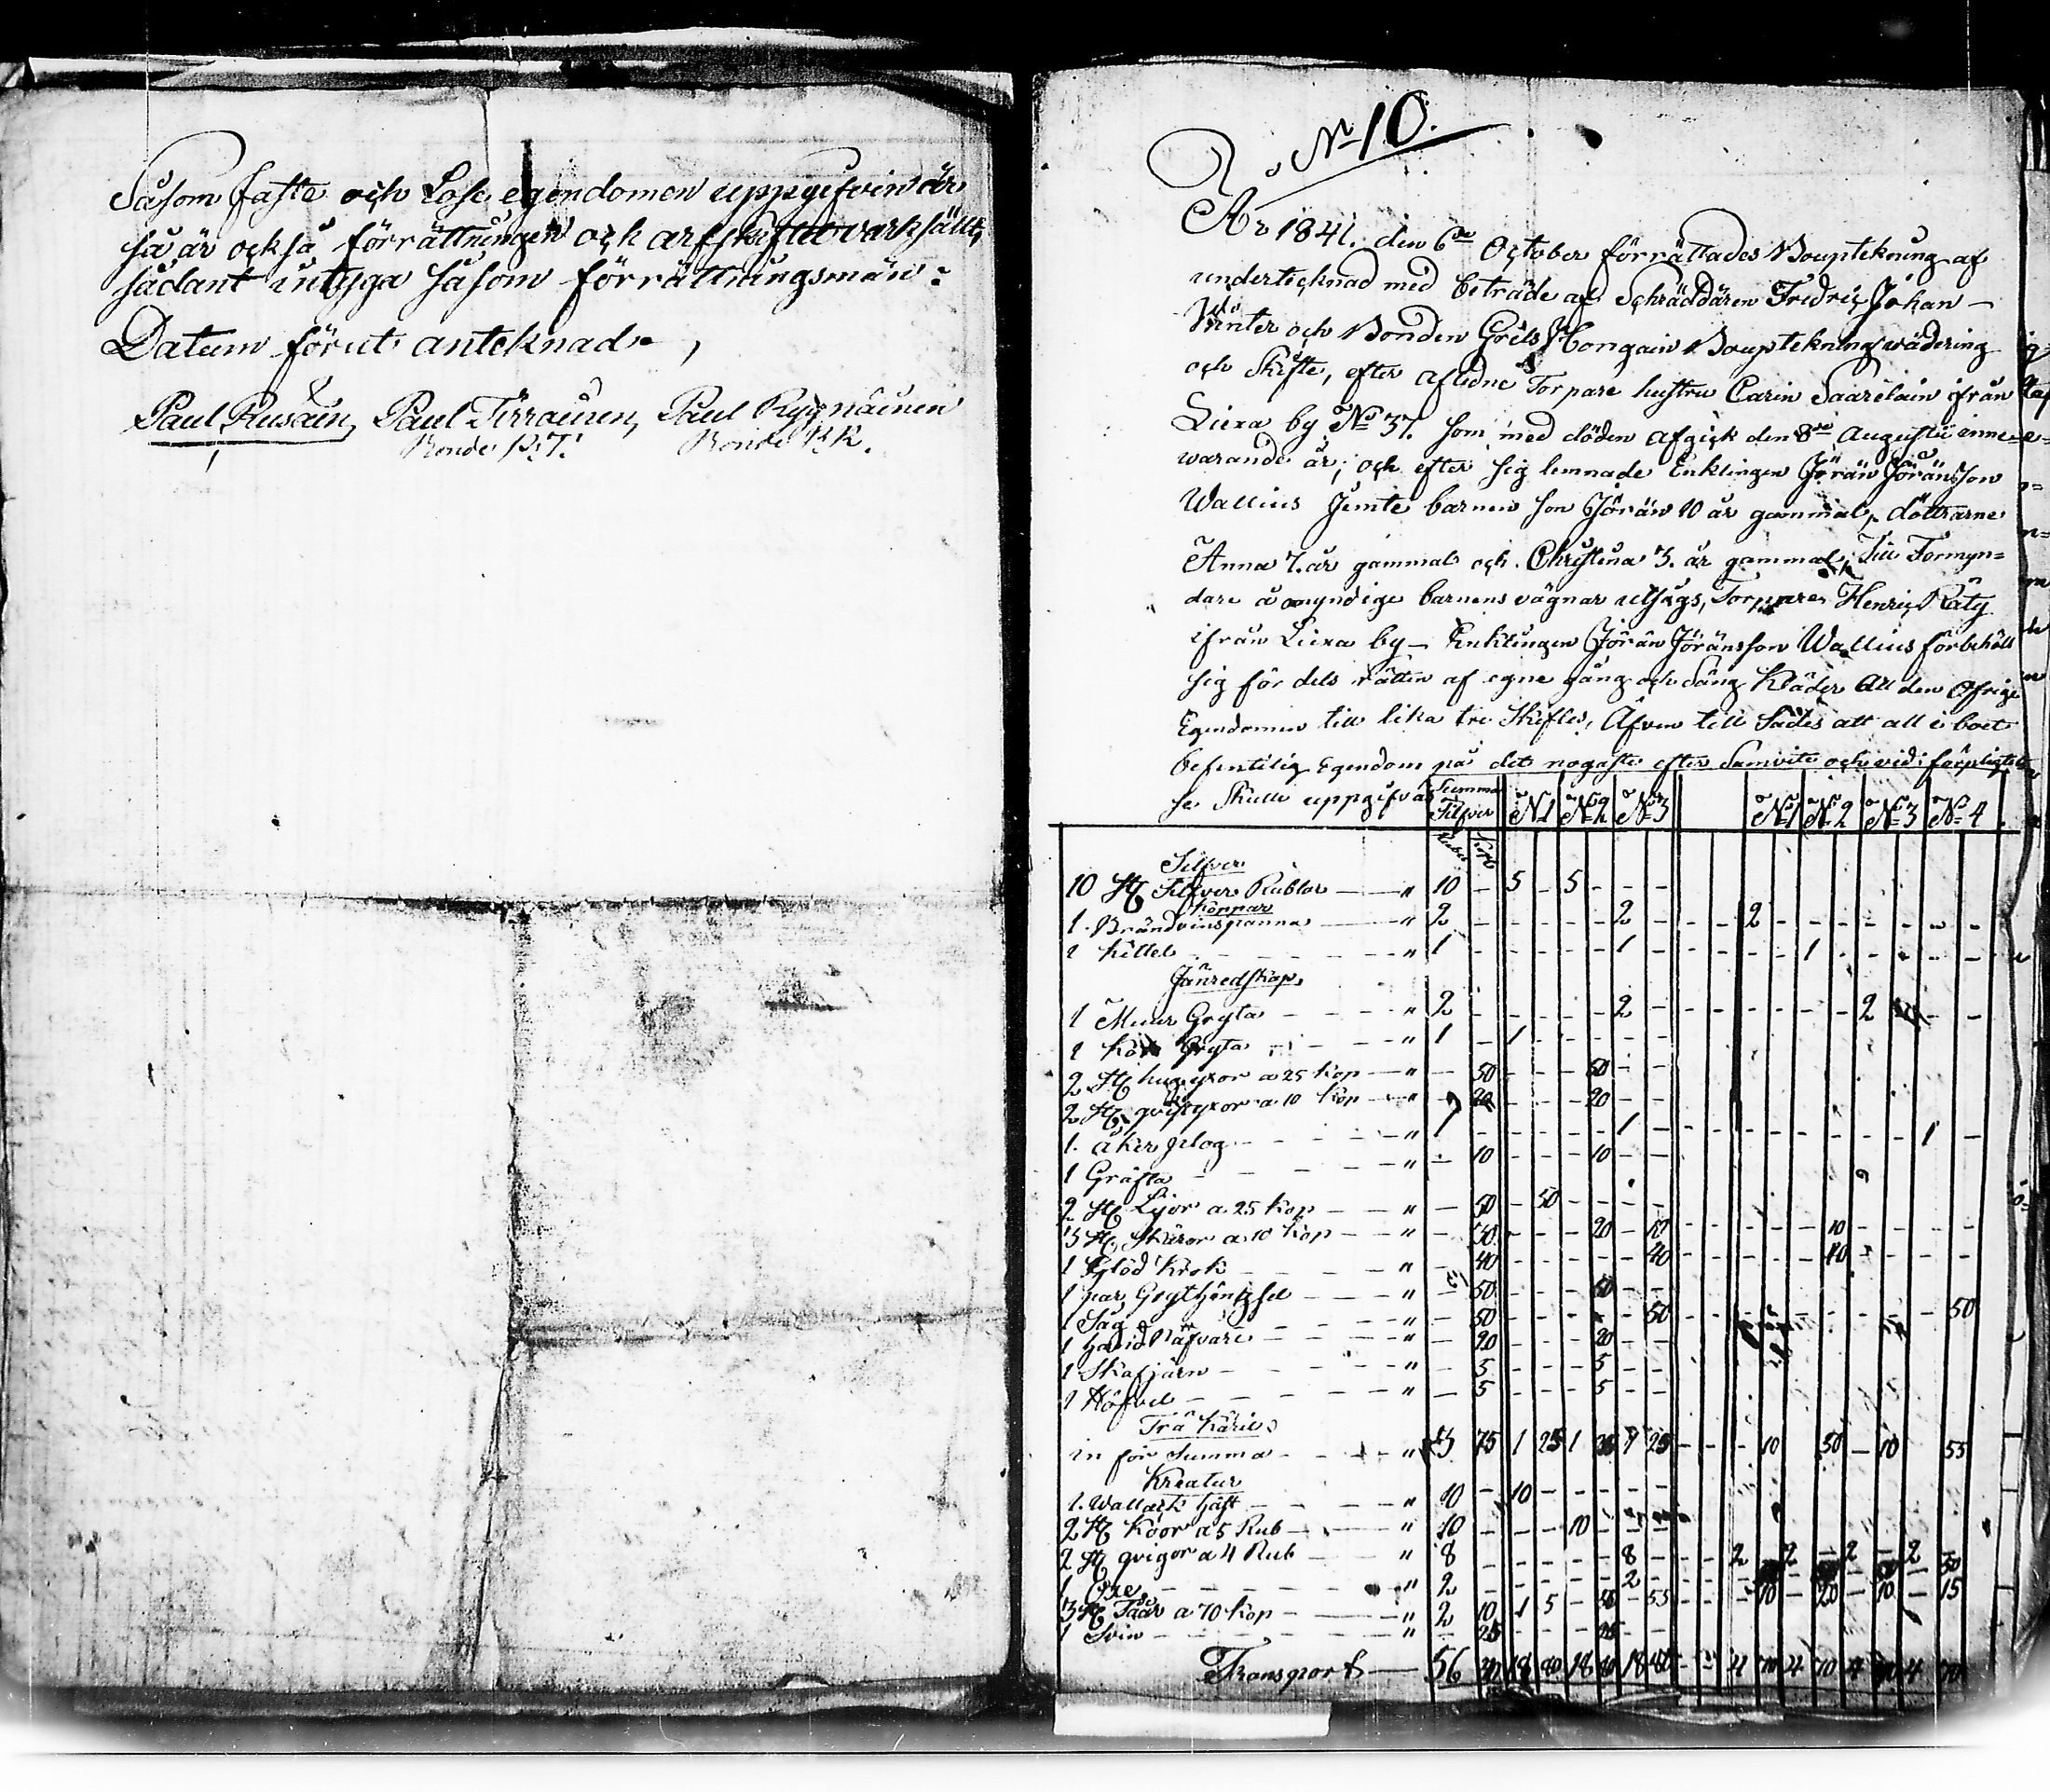 Såsom faste och Lose egendomen uppgifvin är
så är också förrättningen och arfskiftet värksält,
sådant intyga såsom förrättningsmän:
Datum förut anteknad.
Paul Rusain, Paul Tirrainen, Paul Ryynäinen
Bonde P.T. Bonde P.R.
No 10.
År 1841. den 6te October förrättades Bouptekning af
undertecknad med beträde af Schräddären Fredric Johan
Winter och Bonden Grels Hongain Bouptekning wädering
och Skifte, efter aflidne Torpare hustru Carin Saarelain ifrån
Liexa by No 37. som med döden afgick den 8de Augusti inne-
warande år; och efter sig lemnade Enklingen Jörän Jöränsson
Wallius Jemte barnen son Jörän 10 år gammal, döttrarne
Anna 7. år gammal och Christina 3. år gammal; Till Förmyn=
dare å omyndige barnens vägnar utsågs, Torpare Henric Räty
ifrån Liexa by – Enklingen Jörän Jöränsson Wallius förbehöll
sig för dels rätten af egne gång och Säng Kläder All den öfrige
Egendomen till lika tre Skiftes, Äfven till Sades att all i boet
befintilig Egendom på det nogaste efter Samvite och vid
se Skulle uppgifvas Summa Silfver No 1 No 2 No 3 No 1 No 2 No 3 No 4
Rubel Kop
Silfver
10 St Silfver Rublor — " 10 - 5 - 5 - - -
Koppar
1. Brändvinspanna — " 2 - - - - - 2 - - - 2 - - - - - - -
1 kittel - - - " 1 - - - - - 1 - - - - - 1 - - - - -
Jänredskap
1 Muur Gryta - - - " 2 - - - - - 2 - - - - - - - 2 - -
1 Kok Gryta - - - " 1 - 1 - - - - -
2 St hugyxor a 25 kop — " - 50 - - - 50 - -
2 St qvistyxor a 10 kop — " - 20 - - - 20 - -
1. åker plog - - - " 1 - - - - - 1 - - - - - - - - - 1 -
1 Gräfta - - - " - 10 - - - 10 - -
2 St Lijor a 25 kop — " - 50 - 50 - - - -
3 St Skäror a 10 kop — " - 30 - - - 20 - 10 - - - - - 10 - - - -
1 Glöd krok - - - " - 40 - - - - - 40 - - - - - 40 - - - -
1 par Grythäntzlel — " - 50 - - - 50 - -
1 Såg - - - " - 50 - - - - - 50 - - - - - - - - - 50
1 hand Näfvare - - - " - 20 - - - 20 - -
1 Skafjärn - - - " - 5 - - - 5 - -
1 Höfvel - - - " - 5 - - - 5 - -
Trä käril
in för Summa - - - " 3 75 1 25 1 25 1 25 - - - 10 50 - 10 55
Kreatur
1. Wallack häst - - - " 10 - 10 - - - - -
2 St Koor a 5 Rub — " 10 - - - 10 - - -
2 St qvigor a 4 Rub — " 8 - - - - - 8 - - - 2 - 2 - 2 - 2 -
1 Oxe - - - " 2 - - - - - 2 -
3 St Fåår a 70 kop — " 2 10 1 5 - 50 - 55 - - - 10 - 20 - 10 - 15
1 Svin - - - " - 25 - - - 25 - -
Transport — 56